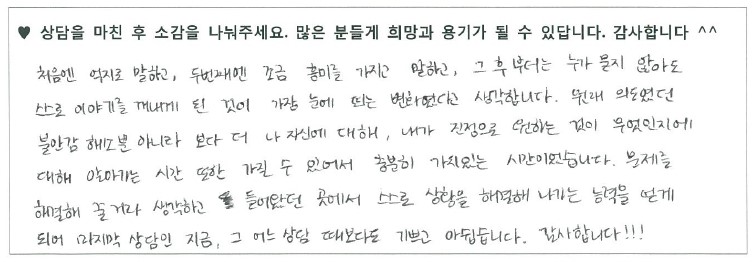 ♥ 상담을 마친 후 소감을 나눠주세요. 많은 분들게 희망과 용기가 될 수 있답니다. 감사합니다 ^^
처음엔 억지로 말하고, 두번째엔 조금 흥미를 가지고 말하고, 그 후부터는 누가 묻지 않아도
스스로 이야기를 꺼내게 된 것이 가장 눈에 띄는 변화였다고 생각합니다. 원래 의도였던
불안감 해소뿐 아니라 보다 더 나 자신에 대해, 내가 진정으로 원하는 것이 무엇인지에
대해 알아가는 시간 또한 가질 수 있어서 충분히 가치있는 시간이었습니다. 문제를
해결해 줄 거라 생각하고 들어왔던 곳에서 스스로 상황을 해결해 나가는 능력을 얻게
되어 마지막 상담인 지금, 그 어느 상담 때보다도 기쁘고 아쉽습니다. 감사합니다!!!